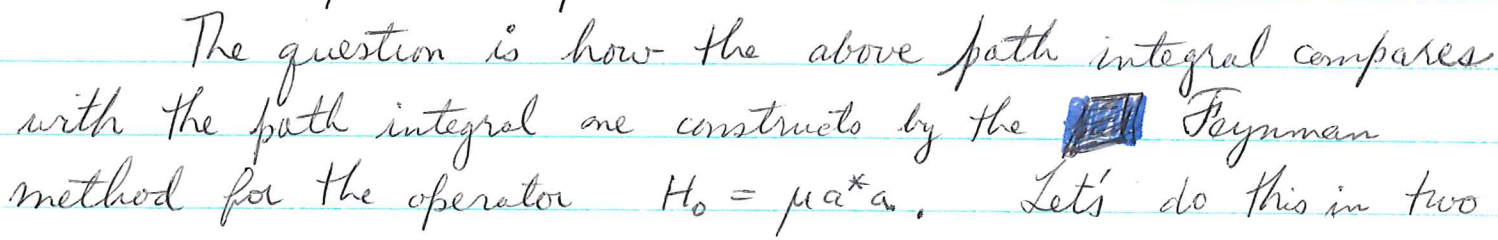 The question is how the above path integral compares
with the path integral one constructs by the Feynman
method for the operator H₀ = μa*a. Let's do this in two